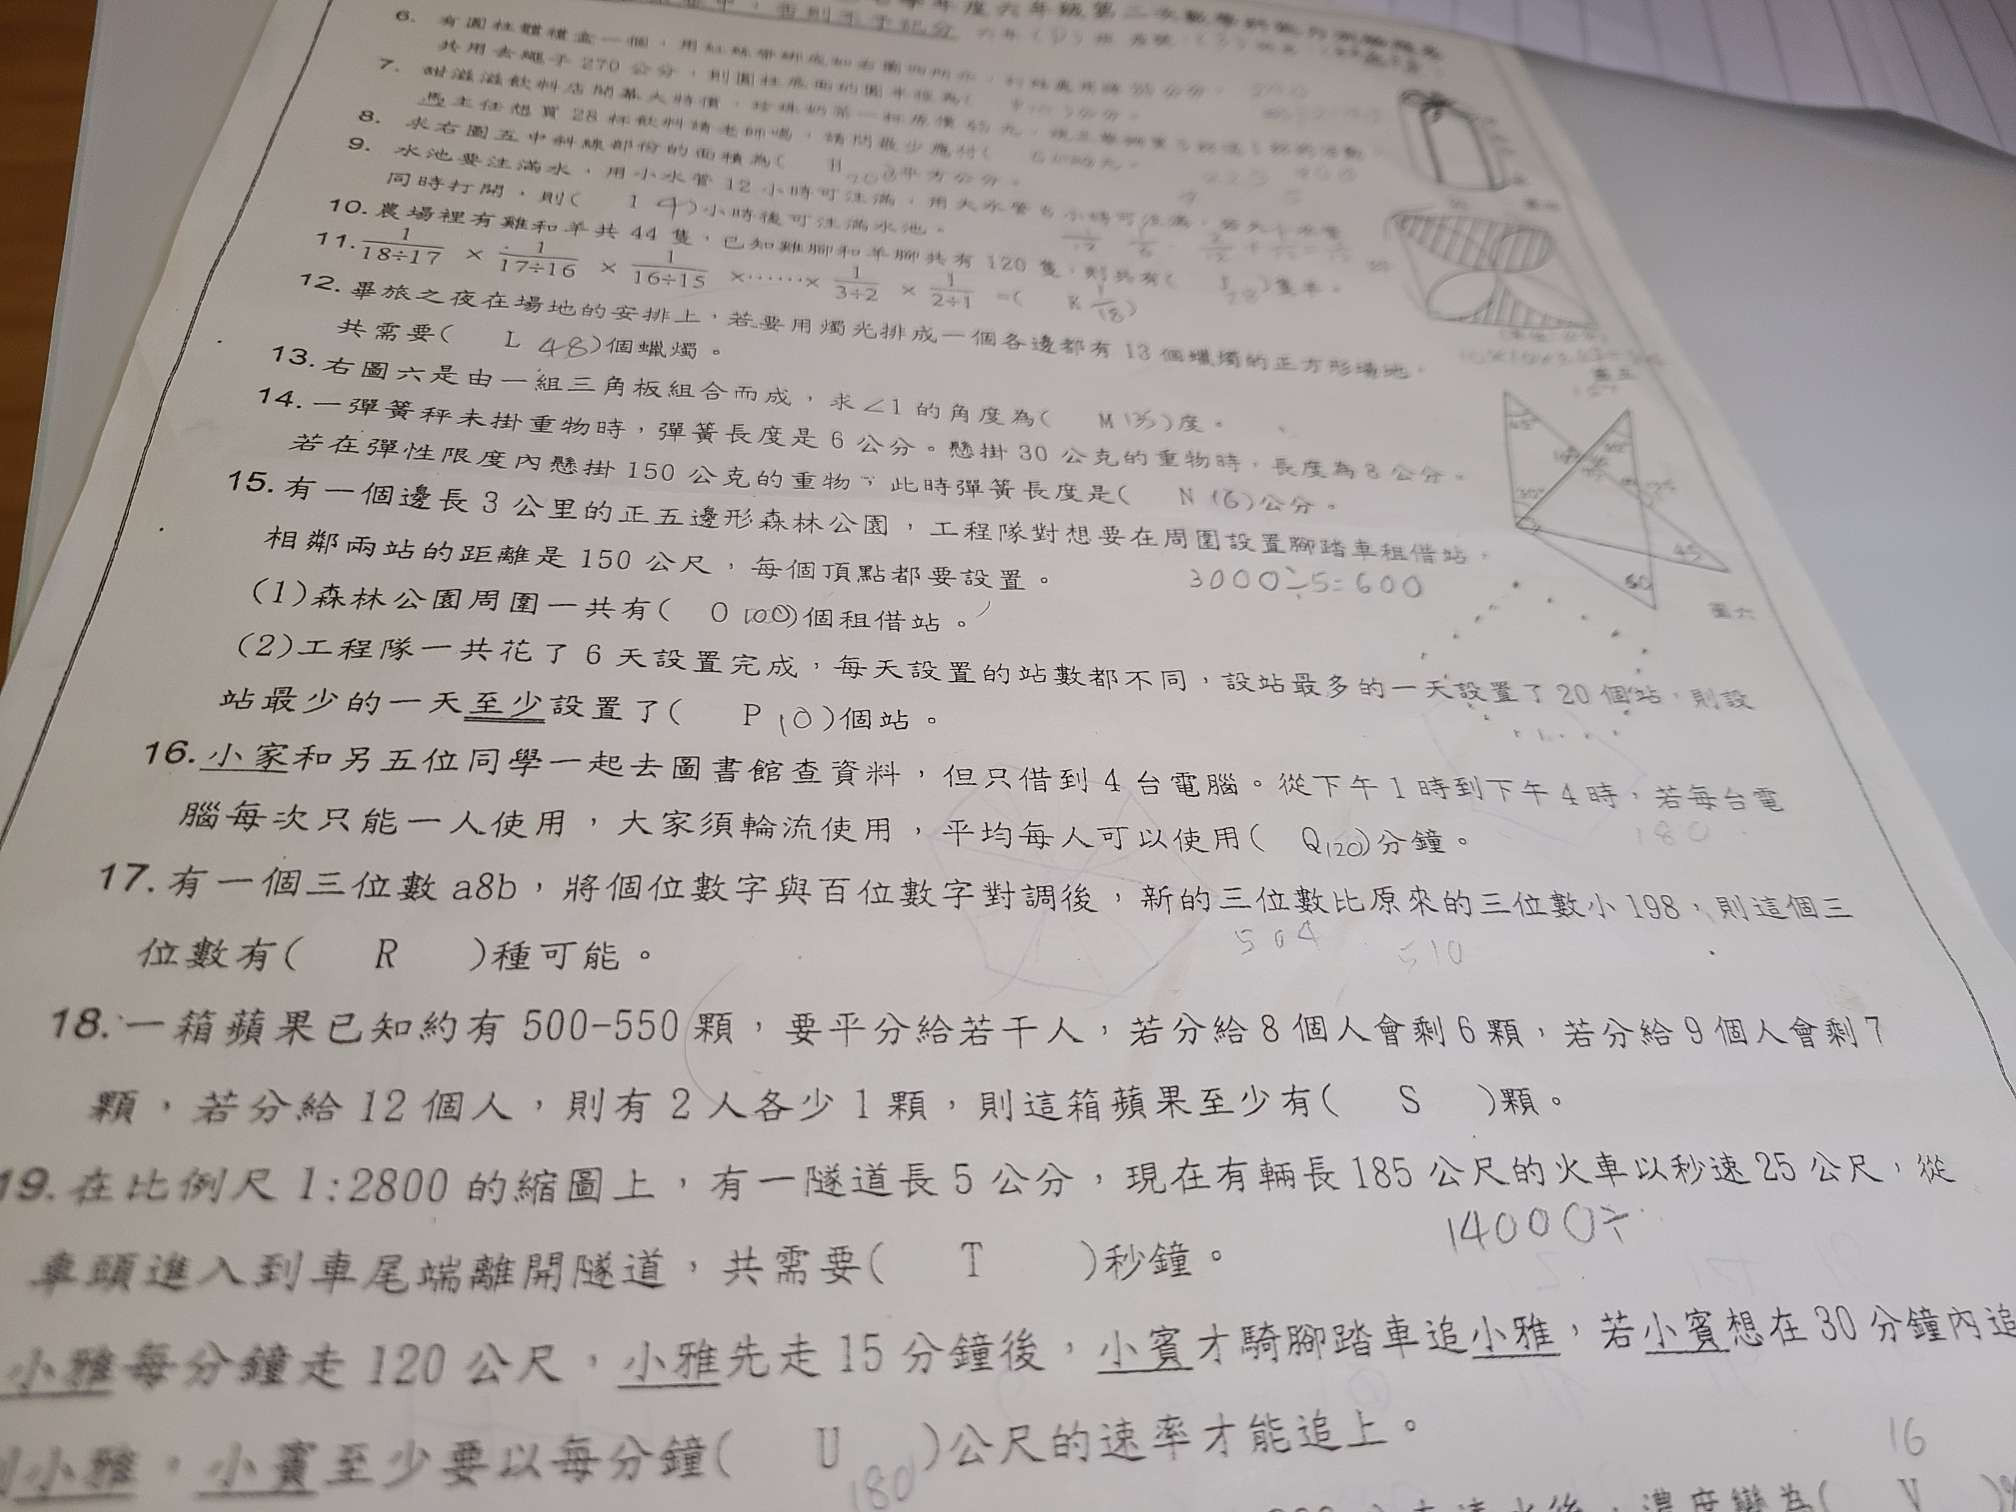 學年度六年級第二次數學
否則不予計分
6. 有圓柱體禮盒一個，用紅絲帶綁成如右圖四所示，
共用去繩子 270 公分，則圓柱底面的圓半徑為( )公分。
7. 甜滋滋飲料店開幕大特價，珍珠奶茶一杯原價 45 元，
馬主任想買 28 杯飲料請老師喝，請問最少應付( )元。
8. 求右圖五中斜線部份的面積為( H )平方公分。
9. 水池要注滿水，用小水管 12 小時可注滿，用大水管 6 小時可注滿，若大小水管
同時打開，則( I 4)小時後可注滿水池。
10. 農場裡有雞和羊共 44 隻，已知雞腳和羊腳共有 120 隻，則共有( J )隻羊。
11. 1/18÷17 × 1/17÷16 × 1/16÷15 ×⋯⋯× 1/3÷2 × 1/2÷1 =( K 1/18)
12. 畢旅之夜在場地的安排上，若要用燭光排成一個各邊都有 13 個蠟燭的正方形場地，
共需要( L 48)個蠟燭。
13. 右圖六是由一組三角板組合而成，求∠1 的角度為( M )度。
14. 一彈簧秤未掛重物時，彈簧長度是 6 公分。懸掛 30 公克的重物時，長度為 8 公分。
若在彈性限度內懸掛 150 公克的重物，此時彈簧長度是( N 16)公分。
15. 有一個邊長 3 公里的正五邊形森林公園，工程隊對想要在周圍設置腳踏車租借站，
相鄰兩站的距離是 150 公尺，每個頂點都要設置。
3000÷5=600
(1)森林公園周圍一共有( O 100)個租借站。
(2)工程隊一共花了 6 天設置完成，每天設置的站數都不同，設站最多的一天設置了 20 個站，則設
站最少的一天至少設置了( P 10)個站。
45
60
圖六
16. 小家和另五位同學一起去圖書館查資料，但只借到 4 台電腦。從下午 1 時到下午 4 時，若每台電
腦每次只能一人使用，大家須輪流使用，平均每人可以使用( Q 120)分鐘。
180
17. 有一個三位數 a8b，將個位數字與百位數字對調後，新的三位數比原來的三位數小 198，則這個三
位數有( R )種可能。
504 510
18. 一箱蘋果已知約有 500-550 顆，要平分給若干人，若分給 8 個人會剩 6 顆，若分給 9 個人會剩 7
顆，若分給 12 個人，則有 2 人各少 1 顆，則這箱蘋果至少有( S )顆。
19. 在比例尺 1:2800 的縮圖上，有一隧道長 5 公分，現在有輛長 185 公尺的火車以秒速 25 公尺，從
車頭進入到車尾端離開隧道，共需要( T )秒鐘。
14000÷
小雅每分鐘走 120 公尺，小雅先走 15 分鐘後，小賓才騎腳踏車追小雅，若小賓想在 30 分鐘內追
到小雅，小賓至少要以每分鐘( U 180)公尺的速率才能追上。
16
清水後，濃度變為( V )